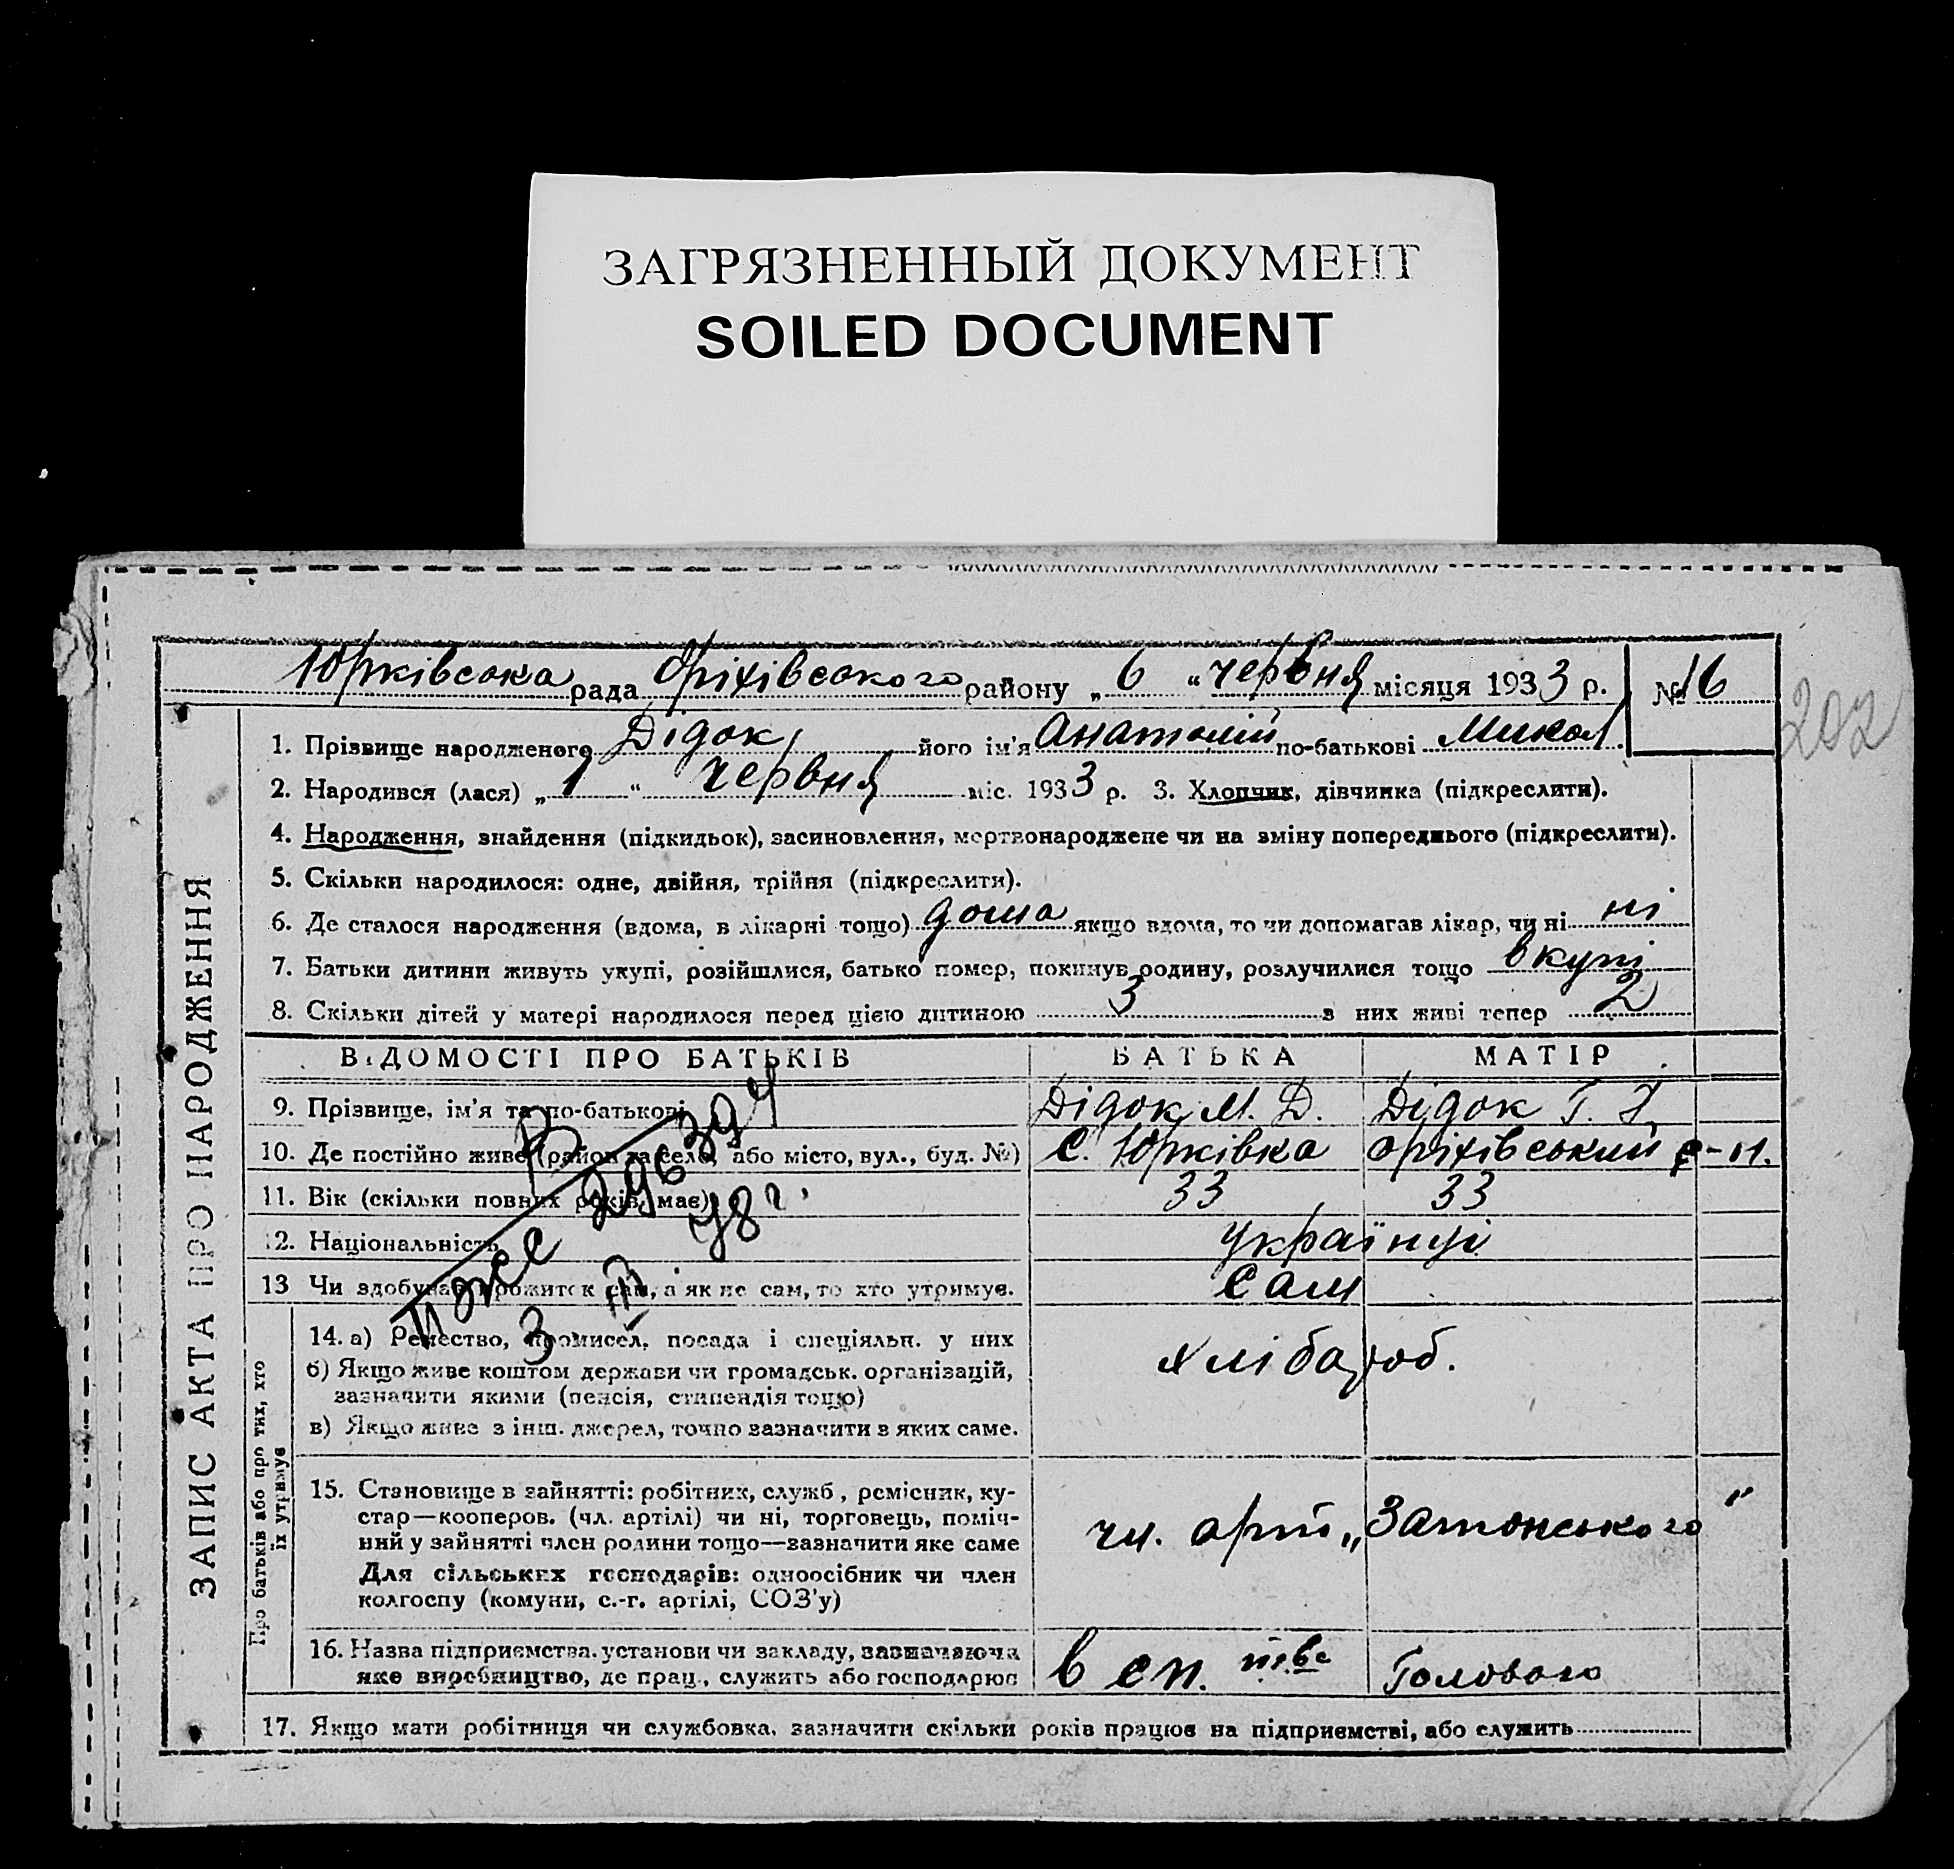 ЗАГРЯЗНЕННЫЙ ДОКУМЕНТ
SOILED DOCUMENT
Юрківська рада Оріхівського району „ 6 “ червня місяця 1933 р. № 16
202
ЗАПИС АКТА ПРО НАРОДЖЕННЯ
1. Прізвище народженого Дідок його ім'я Анатолій по-батькові Микол
2. Народився (лася) „ 1 “ червня міс. 1933 р. 3. Хлопчик, дівчинка (підкреслити).
4. Народження, знайдення (підкидьок), засиновлення, мертвонароджене чи на зміну попереднього (підкреслити).
5. Скільки народилося: одне, двійня, трійня (підкреслити).
6. Де сталося народження (вдома, в лікарні тощо) дома якщо вдома, то чи допомагав лікар, чи ні ні
7. Батьки дитини живуть укупі, розійшлися, батько помер, покинув родину, розлучилися тощо вкупі
8. Скільки дітей у матері народилося перед цією дитиною 3 з них живі тепер 2
ВІДОМОСТІ ПРО БАТЬКІВ БАТЬКА МАТІР
9. Прізвище, ім'я та по-батькові Дідок М. Д. Дідок Г.
10. Де постійно живе (район та село, або місто, вул., буд. №) с. Юрківка Оріхівський р-н.
11. Вік (скільки повних років має) 33 33
12. Національність українці
13 Чи здобуває прожиток сам, а як не сам, то хто утримує. сам
Про батьків або про тих, хто
їх утримує
14. а) Ремество, промисел, посада і спеціяльн. у них хлібороб.
б) Якщо живе коштом держави чи громадськ. організацій,
зазначити якими (пенсія, стипендія тощо)
в) Якщо живе з інш. джерел, точно зазначити з яких саме.
15. Становище в зайнятті: робітник, служб., ремісник, ку-
стар—кооперов. (чл. артілі) чи ні, торговець, поміч-
ний у зайнятті член родини тощо—зазначити яке саме
чл. арт „Затонського“
Для сільських господарів: одноосібник чи член
колгоспу (комуни, с.-г. артілі, СОЗ'у)
16. Назва підприємства, установи чи закладу, зазначаючи
яке виробництво, де прац., служить або господарює в сп.
17. Якщо мати робітниця чи службовка, зазначити скільки років працює на підприємстві, або служить
296394
3 III 48 г.